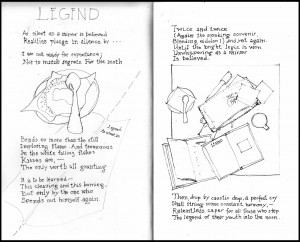 LEGEND
As silent as a mirror is believed
Realities plunge in silence by...
I am not ready for repentance;
Nor to match regrets. For the moth
Bends no more than the still
Imploring flame. And tremorous
In the white falling flakes
Kisses are, —
The only worth all granting.
It is to be learned —
This cleaving and this burning,
But only by the one who
Spends out himself again.
Twice and twice
(Again the smoking souvenir,
Bleeding eidolon!) and yet again.
Until the bright logic is won
Unwhispering as a mirror
Is believed.
Then, drop by caustic drop, a perfect cry
Shall string some constant harmony, —
Relentless caper for all those who step
The legend of their youth into the noon.